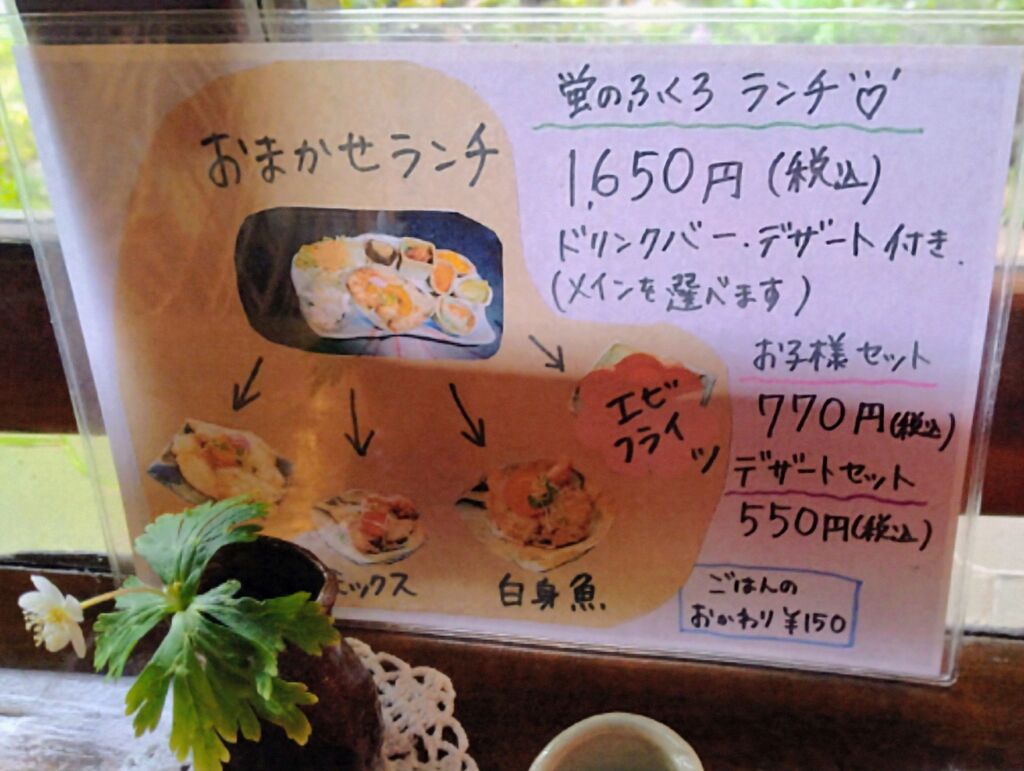 おまかせランチ
エビ
フライ
ックス
白身魚
蛍のふくろ ランチ♡
1,650円(税込)
ドリンクバー・デザート付き.
(メインを選べます)
お子様セット
770円(税込)
デザートセット
550円(税込)
ごはんの
おかわり¥150